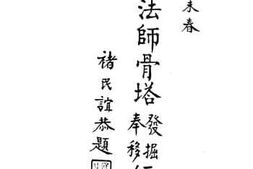 未春
法師骨塔發掘
奉移
褚民誼恭題